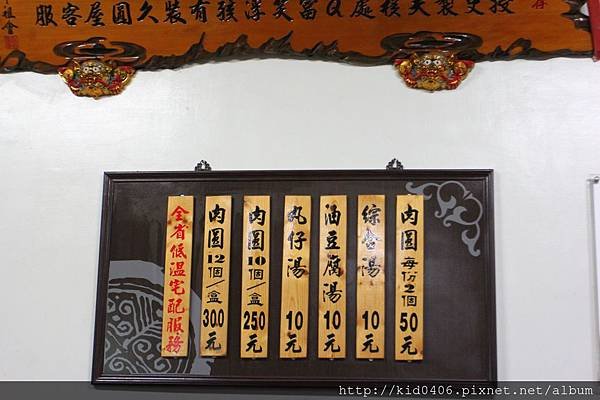 服客屋圓久裝有
肉圓每份2個50元
綜合湯10元
油豆腐湯10元
丸仔湯10元
肉圓10個/盒250元
肉圓12個/盒300元
全省低溫宅配服務
http://kid0406.pixnet.net/album